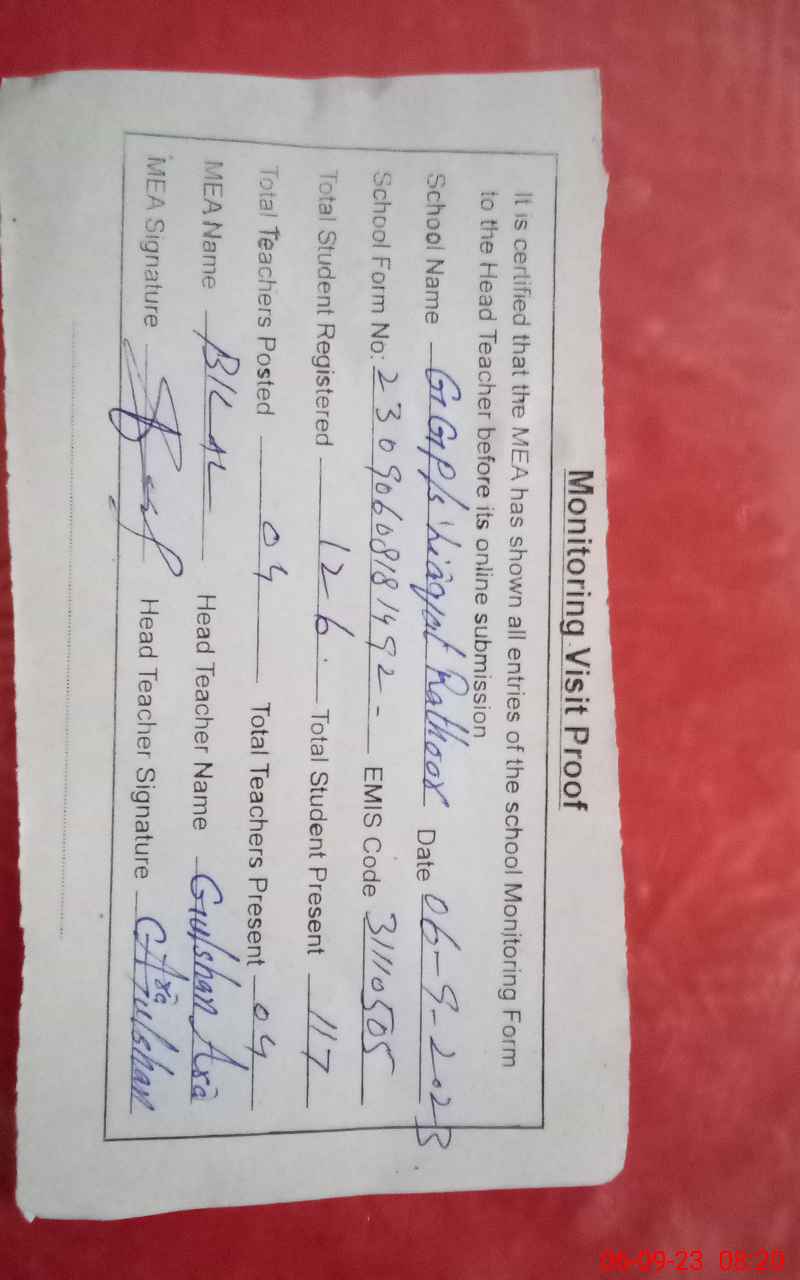 Monitoring Visit Proof
It is certified that the MEA has shown all entries of the school Monitoring Form
to the Head Teacher before its online submission
School Name GGP/s Liaqat Rathoor Date 06-9-2023
School Form No: 23090608181492- EMIS Code 31110505
Total Student Registered 126 Total Student Present 117
Total Teachers Posted 04 Total Teachers Present 04
MEA Name BILAL Head Teacher Name Gulshan Ara
MEA Signature Head Teacher Signature Gulshan Ara
06-09-23 08:20